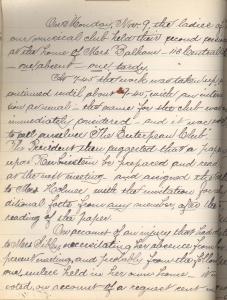 On Monday, Nov. 9, the ladies of
our musical club held their second
at the home of Miss Calhoun - 118 Central
- one absent - one tardy.
At 7.45 the work was taken up
continued until about 9.40, with an inter
as usual - the name for the club was
immediately considered - and it was
to call ourselves "The Euterpean Club".
The President then suggested that a pap
upon Rubinstein be prepared and read
at the next meeting and assigned th
to Miss Holmes with the invitation for
ditional facts from any member, after the
reading of the paper.
On account of an injury that had
to Miss Sibley necessitating her absence from
present meeting, and probably from the
one, unless held in her own home. It
voted, on account of a request sent